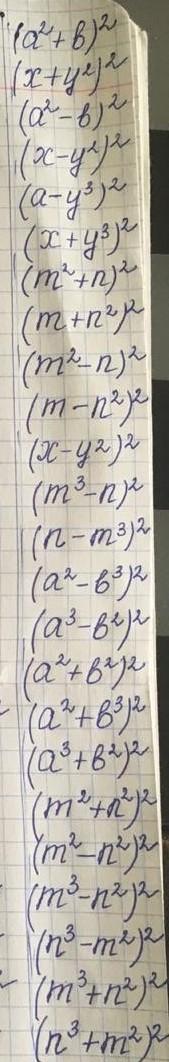 (a²+в)²
(x+y²)²
(a²-в)²
(x-y²)²
(a-y³)²
(x+y³)²
(m²+n)²
(m+n²)²
(m²-n)²
(m-n²)²
(x-y²)²
(m³-n)²
(n-m³)²
(a²-в³)²
(a³-в²)²
(a²+в²)²
(a²+в³)²
(a³+в²)²
(m²+n²)²
(m²-n²)²
(m³-n²)²
(n³-m²)²
(m³+n²)²
(n³+m²)²